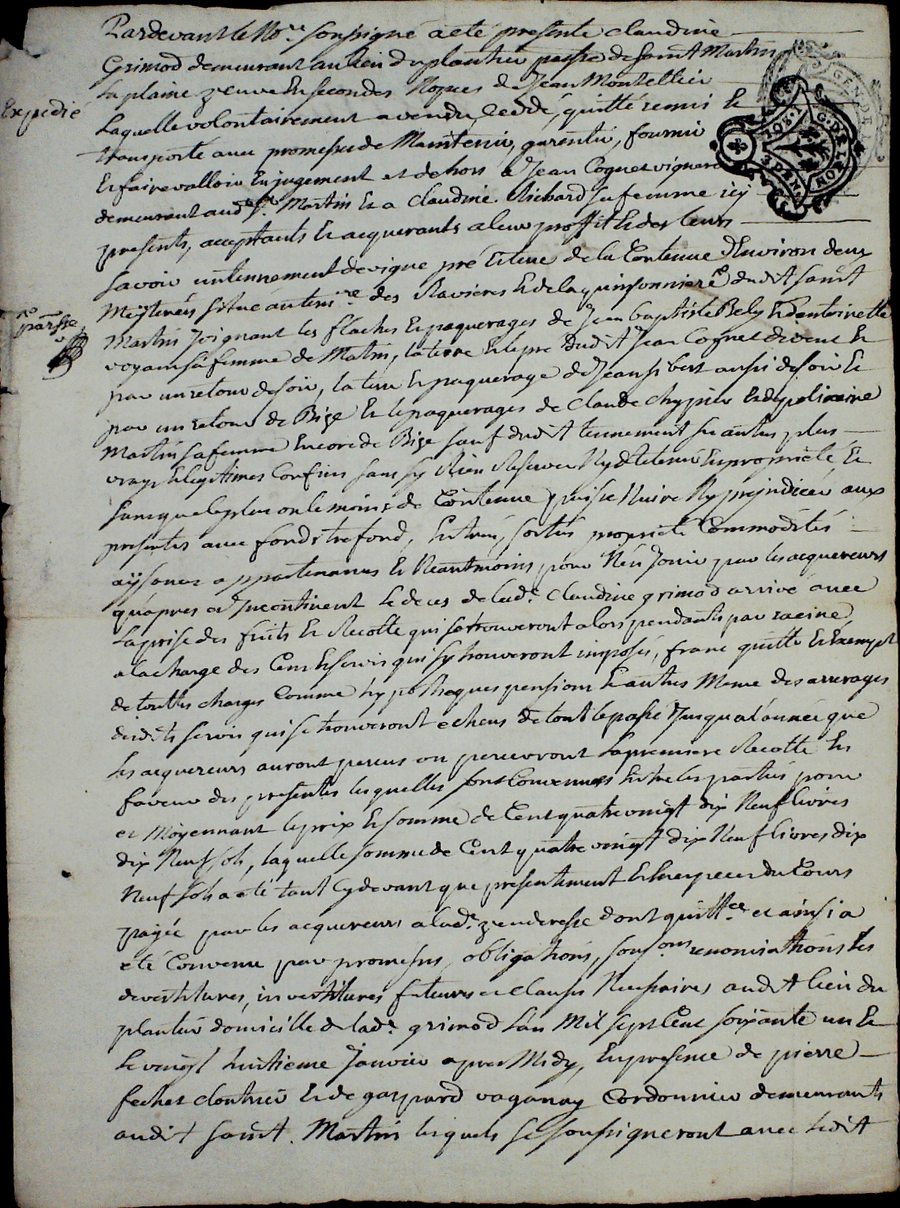 Pardevant le No.re soussigné a été presente claudine
Grimod demeurant au lieu du plantier paroisse de saint Martin
la plaine veuve En secondes Nopces de Jean Montellier
Expedié
Laquelle volontairement a vendu, cedde, quitté remis Et
transporte avec promesse de Maintenir, garentir, fournir
Et faire valloir En jugement et dehors a Jean Cognet vigneron
demeurant aud. St. Martin Et a Claudine Richard sa femme icy
presents, acceptants Et acquerants a leur proffit Et des leurs
savoir un tennement de vigne pré Et terre de la Contenue d'Environ deux
Meyterées situé au des Ravieres Et de la quinsonniere dudit saint
Martin Joignant les flaches Et paquerages de Jean baptiste Bely Et d'entoinette
voyant sa femme de Matin, la terre Et le pre dudit Jean Cognet divent Et
par un retour de soir, la terre Et paquerage de Jean sibert aussi de soir Et
par un retour de Bize Et le paquerages de Claude chypier Et de
Martin sa femme Encore de Bize sauf dudit tennement ses autres plus
vrays Et legitimes Confins sans sy Rien Reserver Ny Retenir En proprieté, Et
sans que le plus ou le moins de Contenue puisse Nuire Ny prejudicier aux
presentes avec fonds trefond, Entrées, sorties proprieté Commodités
aysances appartenances Et Neantmoins, pour N'en Jouir par les acquereurs
qu'apres et Incontinent le deces de lad.e Claudine grimod arrivé avec
la prise des fruits Et Recolte qui se trouveront alors pendants par racine,
a la charge des Cens Et servis qui s'y trouveront imposés, franc quitte Et Exempt
de touttes charges Comme hypotheques pensions Et autres Meme des arrerages
desdits servis qui se trouveront echeus de tout le passé Jusqu'a l'année que
les acquereurs auront percus ou percevront la premiere Recolte En
faveur des presentes lesquelles sont Convenues Entre les parties pour
et Moyennant le prix Et somme de Cent quatre vingt dix Neuf livres
dix Neuf sols, laquelle somme de Cent quatre vingt dix Neuf livres dix
Neuf sols a eté tant Cydevant que presentement En Especes du Cours
payée par les acquereurs a lad.e venderesse dont quitt.ce et ainsi a
été Convenu par promesses, obligations, renonciations Et
devestitures, investitures futeures et Clauses Necessaires audit lieu du
plantier domicille de lad.e grimod L'an Mil sept Cent soixante un Et
le vingt huitieme Janvier apres Midy, En presence de pierre
fechet cloutrier Et de gaspard vaganay Cordonnier demeurants
audit saint Martin lesquels se soussigneront avec ledit
GENER
G. DE LYON
3 DEN